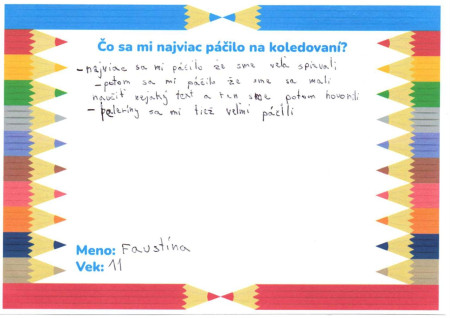 Čo sa mi najviac páčilo na koledovaní?
- najviac sa mi páčilo že sme veľa spievali
- potom sa mi páčilo že sme sa mali
naučiť nejaký text a ten sme potom hovorili
- peleríny sa mi tiež veľmi páčili
Meno: Faustína
Vek: 11